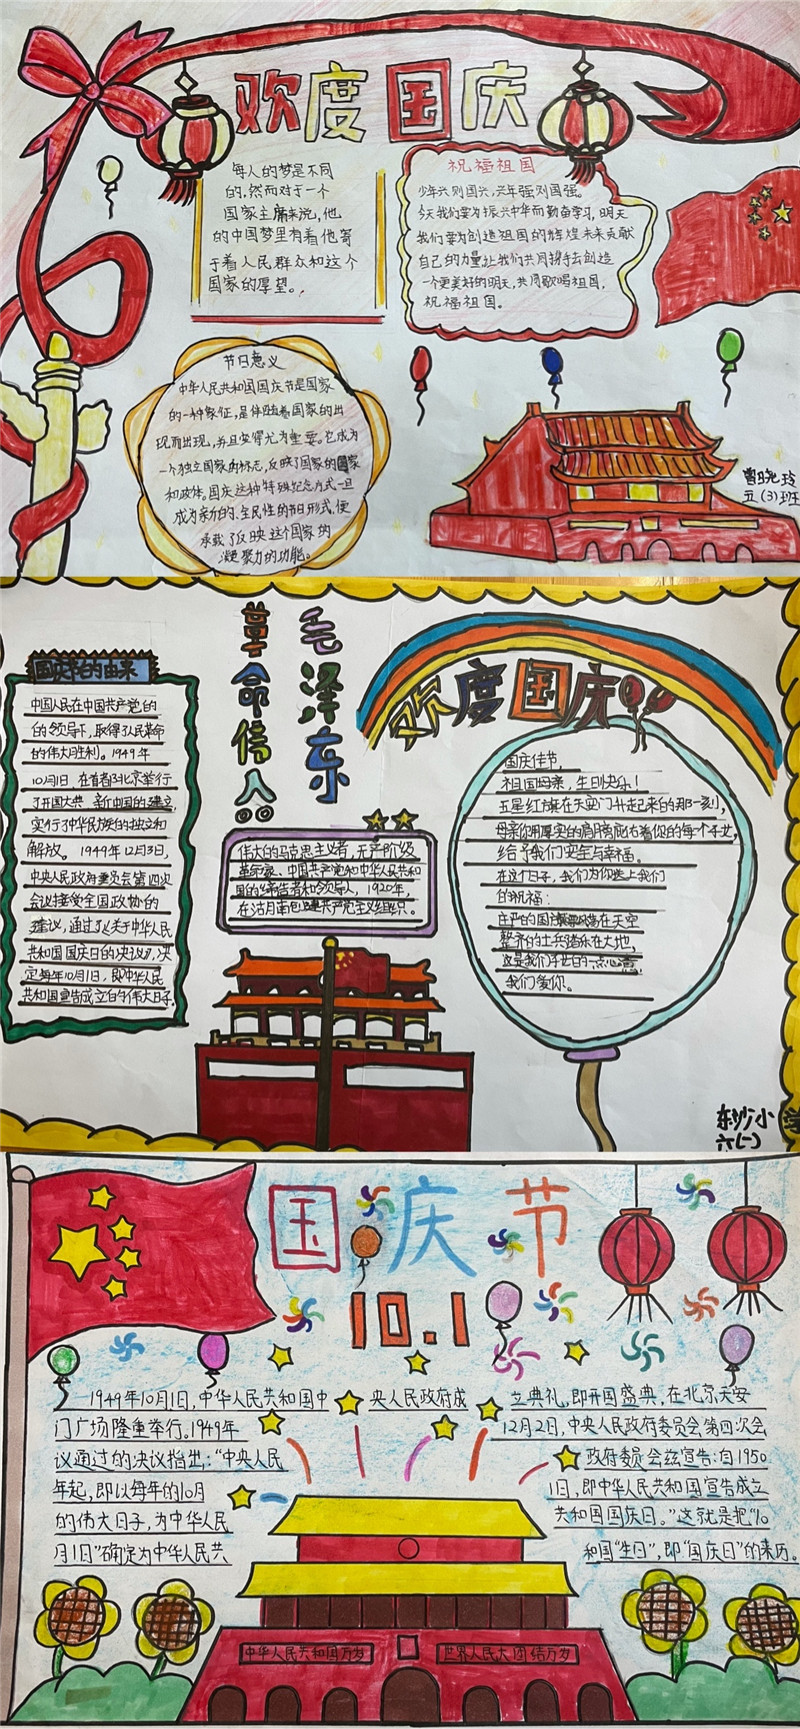 欢度国庆
每人的梦是不同
的,然而对于一个
国家主席来说,他
的中国梦里有着他寄
于着人民群众和这个
国家的愿望。
祝福祖国
少年兴则国兴,少年强则国强。
今天我们要为振兴中华而勤奋学习,明天
我们要为创造祖国的辉煌未来贡献
自己的力量让我们共同携手去创造
一个更美好的明天,共同歌唱祖国,
祝福祖国。
节日意义
中华人民共和国国庆节是国家
的一种象征,是伴随着国家的出
现而出现,并且变得尤为重要。它成为
一个独立国家的标志,反映了国家的国家
和政体。国庆这种特殊纪念方式一旦
成为新的、全民性的节日形式,便
承载了反映这个国家的
凝聚力的功能。
曾晓玲
五(3)班
国庆节的由来
中国人民在中国共产党的
的领导下,取得了人民革命
的伟大胜利。1949年
10月1日,在首都北京举行
了开国大典 新中国的建立,
实行了中华民族的独立和
解放。1949年12月3日,
中央人民政府委员会第四次
会议接受全国政协的
建议,通过了《关于中华人民
共和国国庆日的决议》,决
定每年10月1日,即中华人民
共和国宣告成立的伟大日子
革命伟人
毛泽东
伟大的马克思主义者,无产阶级
革命家、中国共产党和中华人民共和
国的缔造者和领导人,1920年,
在湖南创建共产党主义组织。
欢度国庆
国庆佳节,
祖国母亲,生日快乐!
五星红旗在天安门升起来的那一刻,
母亲你用厚实的肩膀庇护着你的每个子女,
给予我们安全与幸福。
在这个日子,我们为你送上我们
的祝福:
庄严的国旗飘荡在天空
整齐的士兵踏乐在大地,
这是我们子女的一点心意,
我们爱你。
东沙小学
六(一)
国庆节
10.1
1949年10月1日,中华人民共和国中央人民政府成立典礼,即开国盛典,在北京天安
门广场隆重举行。1949年12月2日,中央人民政府委员会第四次会
议通过的决议指出:“中央人民政府委员会兹宣告:自1950
年起,即以每年的10月1日,即中华人民共和国宣告成立
的伟大日子,为中华人民共和国国庆日。”这就是把“10
月1日”确定为中华人民共和国“生日”,即“国庆日”的来历。
中华人民共和国万岁
世界人民大团结万岁